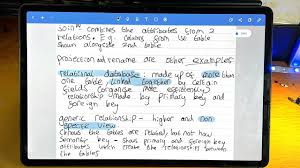 combines the attributes from 2
relations. E.g. columns from one table
shown alongside 2nd table
projection and rename are other examples
relational database: made up of more than
one table, linked together by certain
fields (organise more efficiently)
relationship made by primary key and
foreign key
generic relationship - higher and non
specific view
shows the tables are related but not how
semantic key - shows primary and foreign key
attributes which create the relationship between
the tables